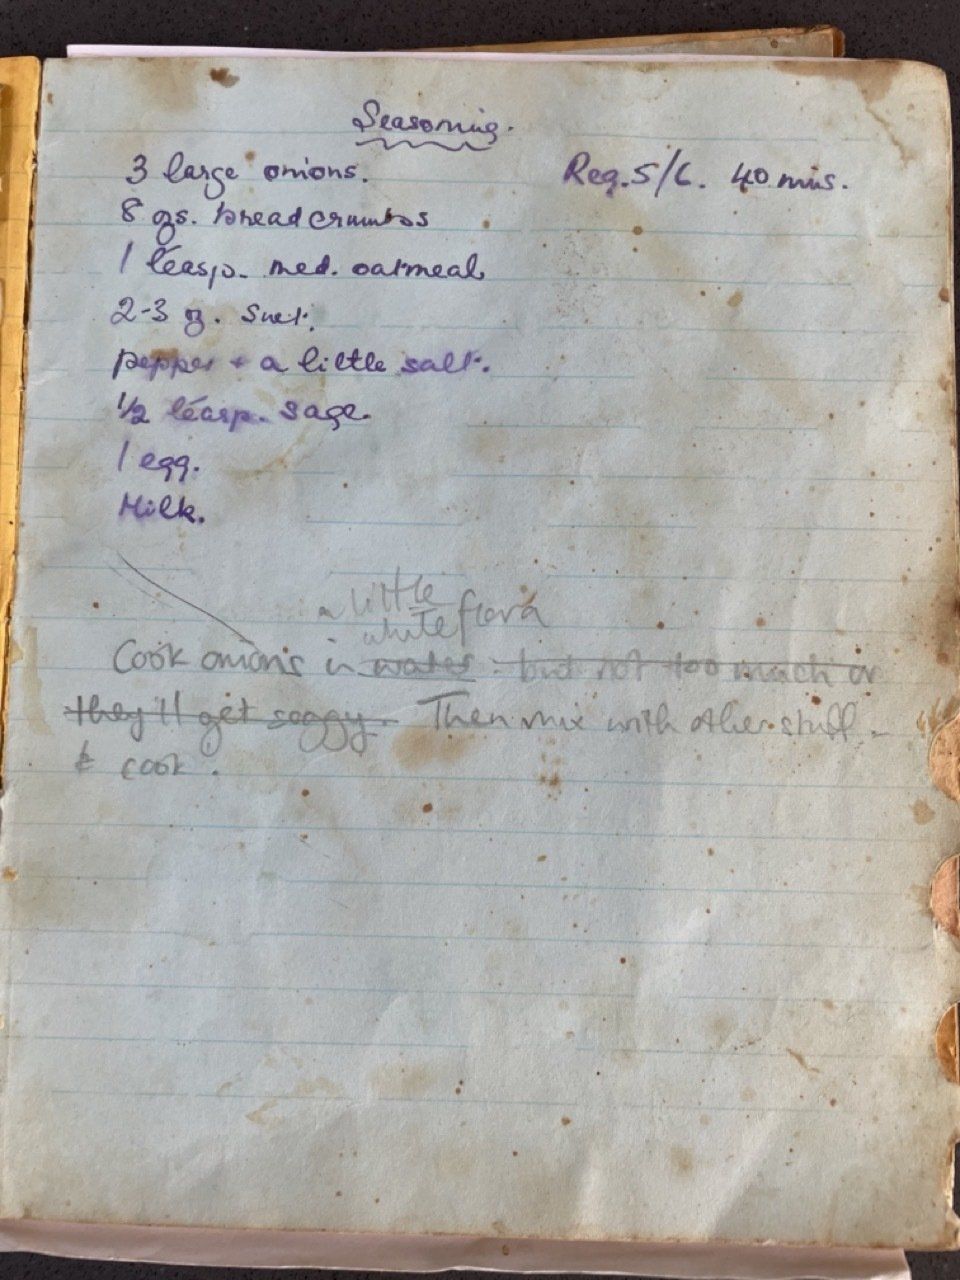 Seasoning.
3 large onions. Reg. 5/6. 40 mins.
8 ozs. breadcrumbs
1 teasp. med. oatmeal
2-3 oz. suet.
pepper + a little salt.
1/2 teasp. sage.
1 egg.
Milk.
a little
white flora
Cook onions in water - but not too much or
they'll get soggy. Then mix with other stuff -
& cook.